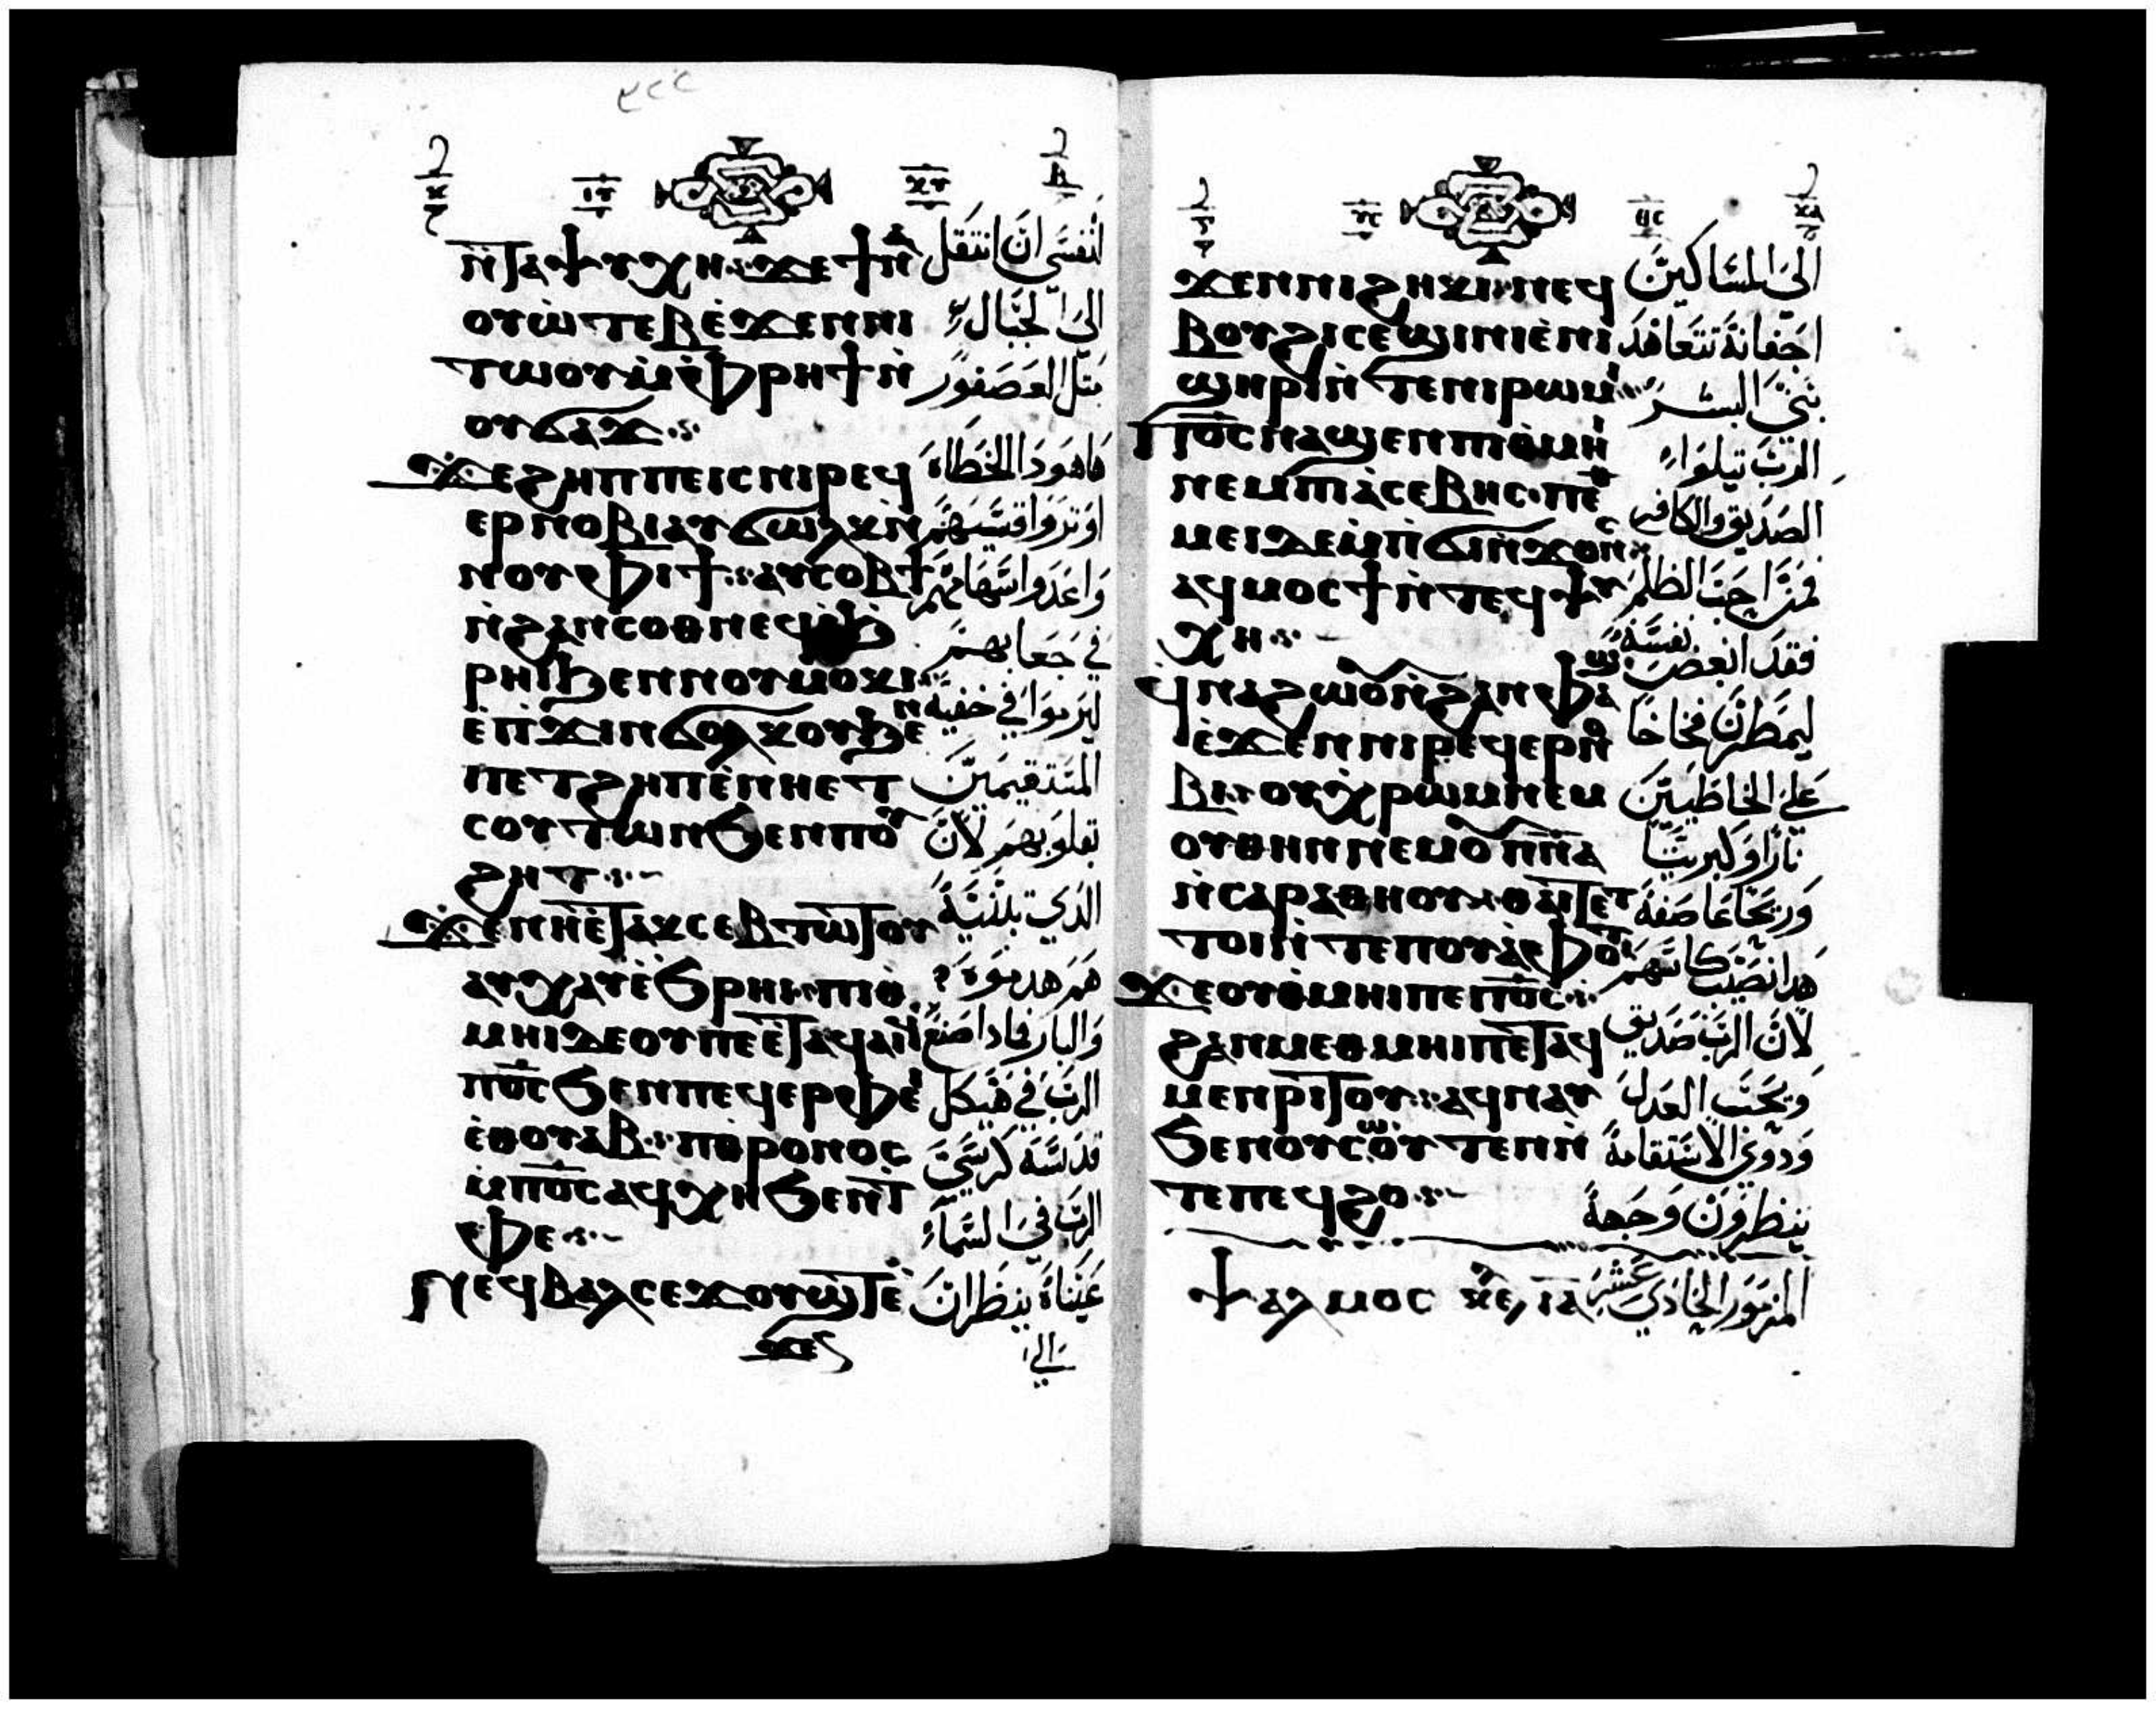 ⲛ̀ⲧⲁⲯⲩⲭⲏ: ϫⲉⲟ̀
ⲟⲩⲱ̀ⲧⲉⲃ ⲉ̀ϫⲉⲛⲛⲓ
ⲧⲱⲟⲩ ⲙ̀ⲫⲣⲏϯ ⲛ̀
ⲟⲩϭⲁϫ
ϫⲉϩⲏⲡⲡⲉⲓⲥ ⲛⲓⲣⲉϥ
ⲉⲣⲛⲟⲃⲓ ⲁⲩϭⲱⲗⲕ ⲛ̀
ⲛⲟⲩⲫⲓϯ: ⲁⲩⲥⲟⲃϯ
ⲛ̀ϩⲁⲛⲥⲟⲑⲛⲉϥ
ⲣⲏⲓ ϧⲉⲛⲛⲟⲩⲙⲟⲕⲓ
ⲉ̀ⲡϫⲓⲛϭⲟⲗⲕⲟⲩ ϧⲉⲛ
ⲡⲉⲧϩⲏⲡ ⲉ̀ⲛⲏⲉⲧ
ⲥⲟⲩⲧⲱⲛ ϧⲉⲛⲡⲟⲩ
ϩⲏⲧ
ϫⲉⲛⲏⲉ̀ⲧⲁⲕⲥⲉⲃⲧⲱⲧⲟⲩ
ⲁⲩⲭⲁⲩ ⲉ̀ϧⲣⲏⲓ: ⲡⲓⲑ
ⲙⲏⲓ ⲇⲉ ⲟⲩ ⲡⲉⲉ̀ⲧⲁϥⲁⲓϥ
ⲡⲟ̅ⲥ̅ ϧⲉⲛⲡⲉϥⲉⲣⲫⲉⲓ
ⲉ̀ⲑⲟⲩⲁⲃ: ⲡⲑⲣⲟⲛⲟⲥ
ⲙ̀ⲡⲟ̅ⲥ̅ ⲁϥⲭⲏ ϧⲉⲛⲧ
ⲫⲉ
ⲛⲉϥⲃⲁⲗ ⲥⲉϫⲟⲩϣⲧ ⲉ̀
ϫⲉ
لنفسي ان انتقل
الى الجبال
مثل العصفور
هاهودا الخطاه
اوتروا قسيهم
واعدوا سهامهم
في جعابهم
ليرموا في خفيه
المستقيمين
بقلوبهم لان
الذي
هم هدموه
والبار فاذا صنع
الرب في هيكل
قدسه كرسي
الرب في السماء
عيناه ينظران
الى
ϫⲉⲛⲛⲓϩⲏⲕⲓ: ⲛⲉϥ
ⲃⲟⲩϩⲓ ⲥⲉϣⲓⲛⲓ ⲉ̀ⲛⲓ
ϣⲏⲣⲓ ⲛ̀ⲧⲉⲛⲓⲣⲱⲙⲓ
ⲡⲟ̅ⲥ̅ ⲛⲁϣⲉⲛ ⲡⲓⲑⲙⲏⲓ
ⲛⲉⲙⲡⲓⲁ̀ⲥⲉⲃⲏⲥ: ⲡⲉⲧ
ⲙⲉⲓ ⲇⲉ ⲙ̀ⲡϭⲓⲛϫⲟⲛⲥ
ⲁϥⲙⲟⲥϯ ⲛ̀ⲧⲉϥⲯⲩ
ⲭⲏ
ϥⲛⲁϩⲱⲟⲩ ⲛ̀ϩⲁⲛⲫⲁϣ
ⲉ̀ϫⲉⲛⲛⲓⲣⲉϥⲉⲣⲛⲟ
ⲃⲓ: ⲟⲩⲭⲣⲱⲙ ⲛⲉⲙ
ⲟⲩⲑⲏⲛ ⲛⲉⲙⲟⲩⲡ̅ⲛ̅ⲁ̅
ⲛ̀ⲥⲁⲣⲁⲑⲏⲟⲩ: ⲑⲁⲓ ⲧⲉ
ⲧⲟⲓ ⲛ̀ⲧⲉⲡⲟⲩⲁ̀ⲫⲟⲧ
ϫⲉⲟⲩⲑⲙⲏⲓ ⲡⲉⲡⲟ̅ⲥ̅
ϩⲁⲛⲙⲉⲑⲙⲏⲓ ⲡⲉⲧⲁϥ
ⲙⲉⲛⲣⲓⲧⲟⲩ: ⲁϥⲛⲁⲩ
ϧⲉⲛⲟⲩⲥⲱⲟⲩⲧⲉⲛ ⲛ̀
ⲧⲉⲡⲉϥϩⲟ
الى المساكين
اجفانه تتعاهد
بني البشر
الرب يبلوا
الصديق والكافر
فمن احب الظلم
فقد ابغض نفسه
ليمطرن فخاخا
على الخاطيين
نارا وكبريتا
وريحا عاصفه
هدا نصيب كاسهم
لان الرب صديق
ويحب العدل
وذوي الاستقامة
ينظرون وجهه
ⲯⲁⲗⲙⲟⲥ ⲓⲁ المزمور الحادي عشر